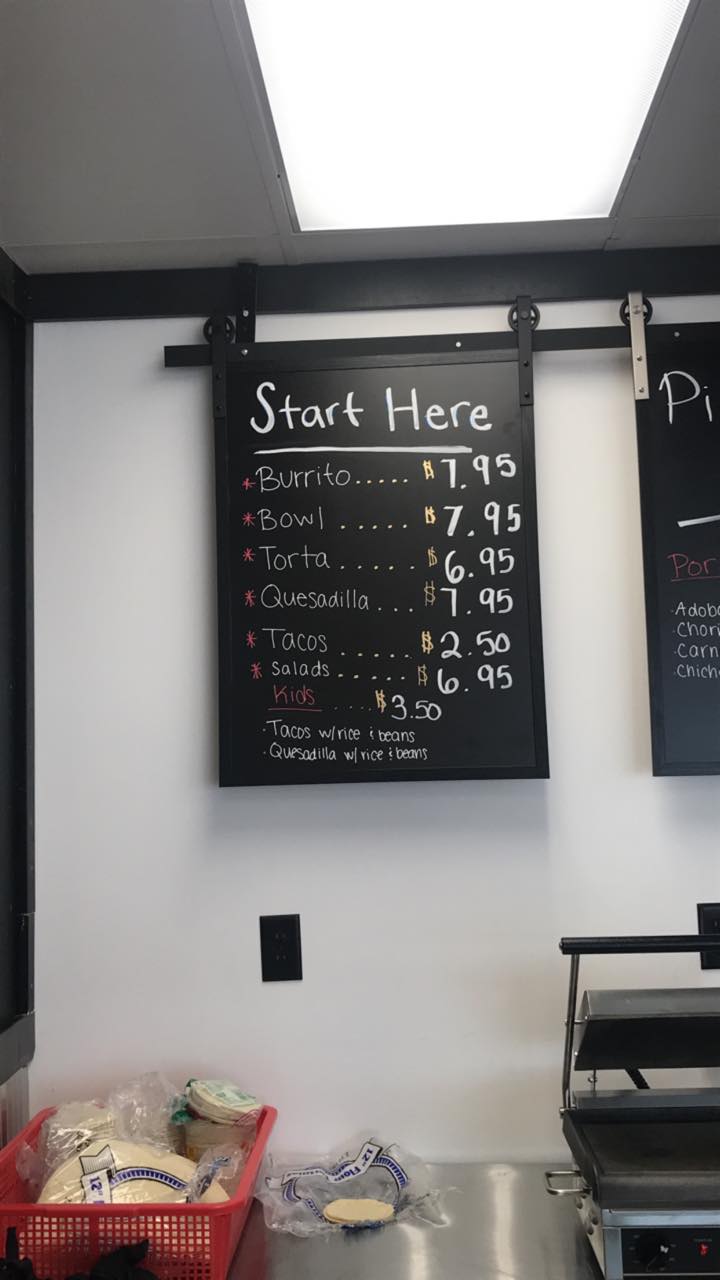 Start Here
* Burrito..... $ 7.95
* Bowl ..... $ 7.95
* Torta ..... $ 6.95
* Quesadilla... $ 7.95
* Tacos ..... $ 2.50
* Salads ..... $ 6.95
Kids .... $3.50
· Tacos w/rice & beans
· Quesadilla w/rice & beans
Pi
Por
· Adob
· Chori
· Carn
· Chich
12"
12" Flou